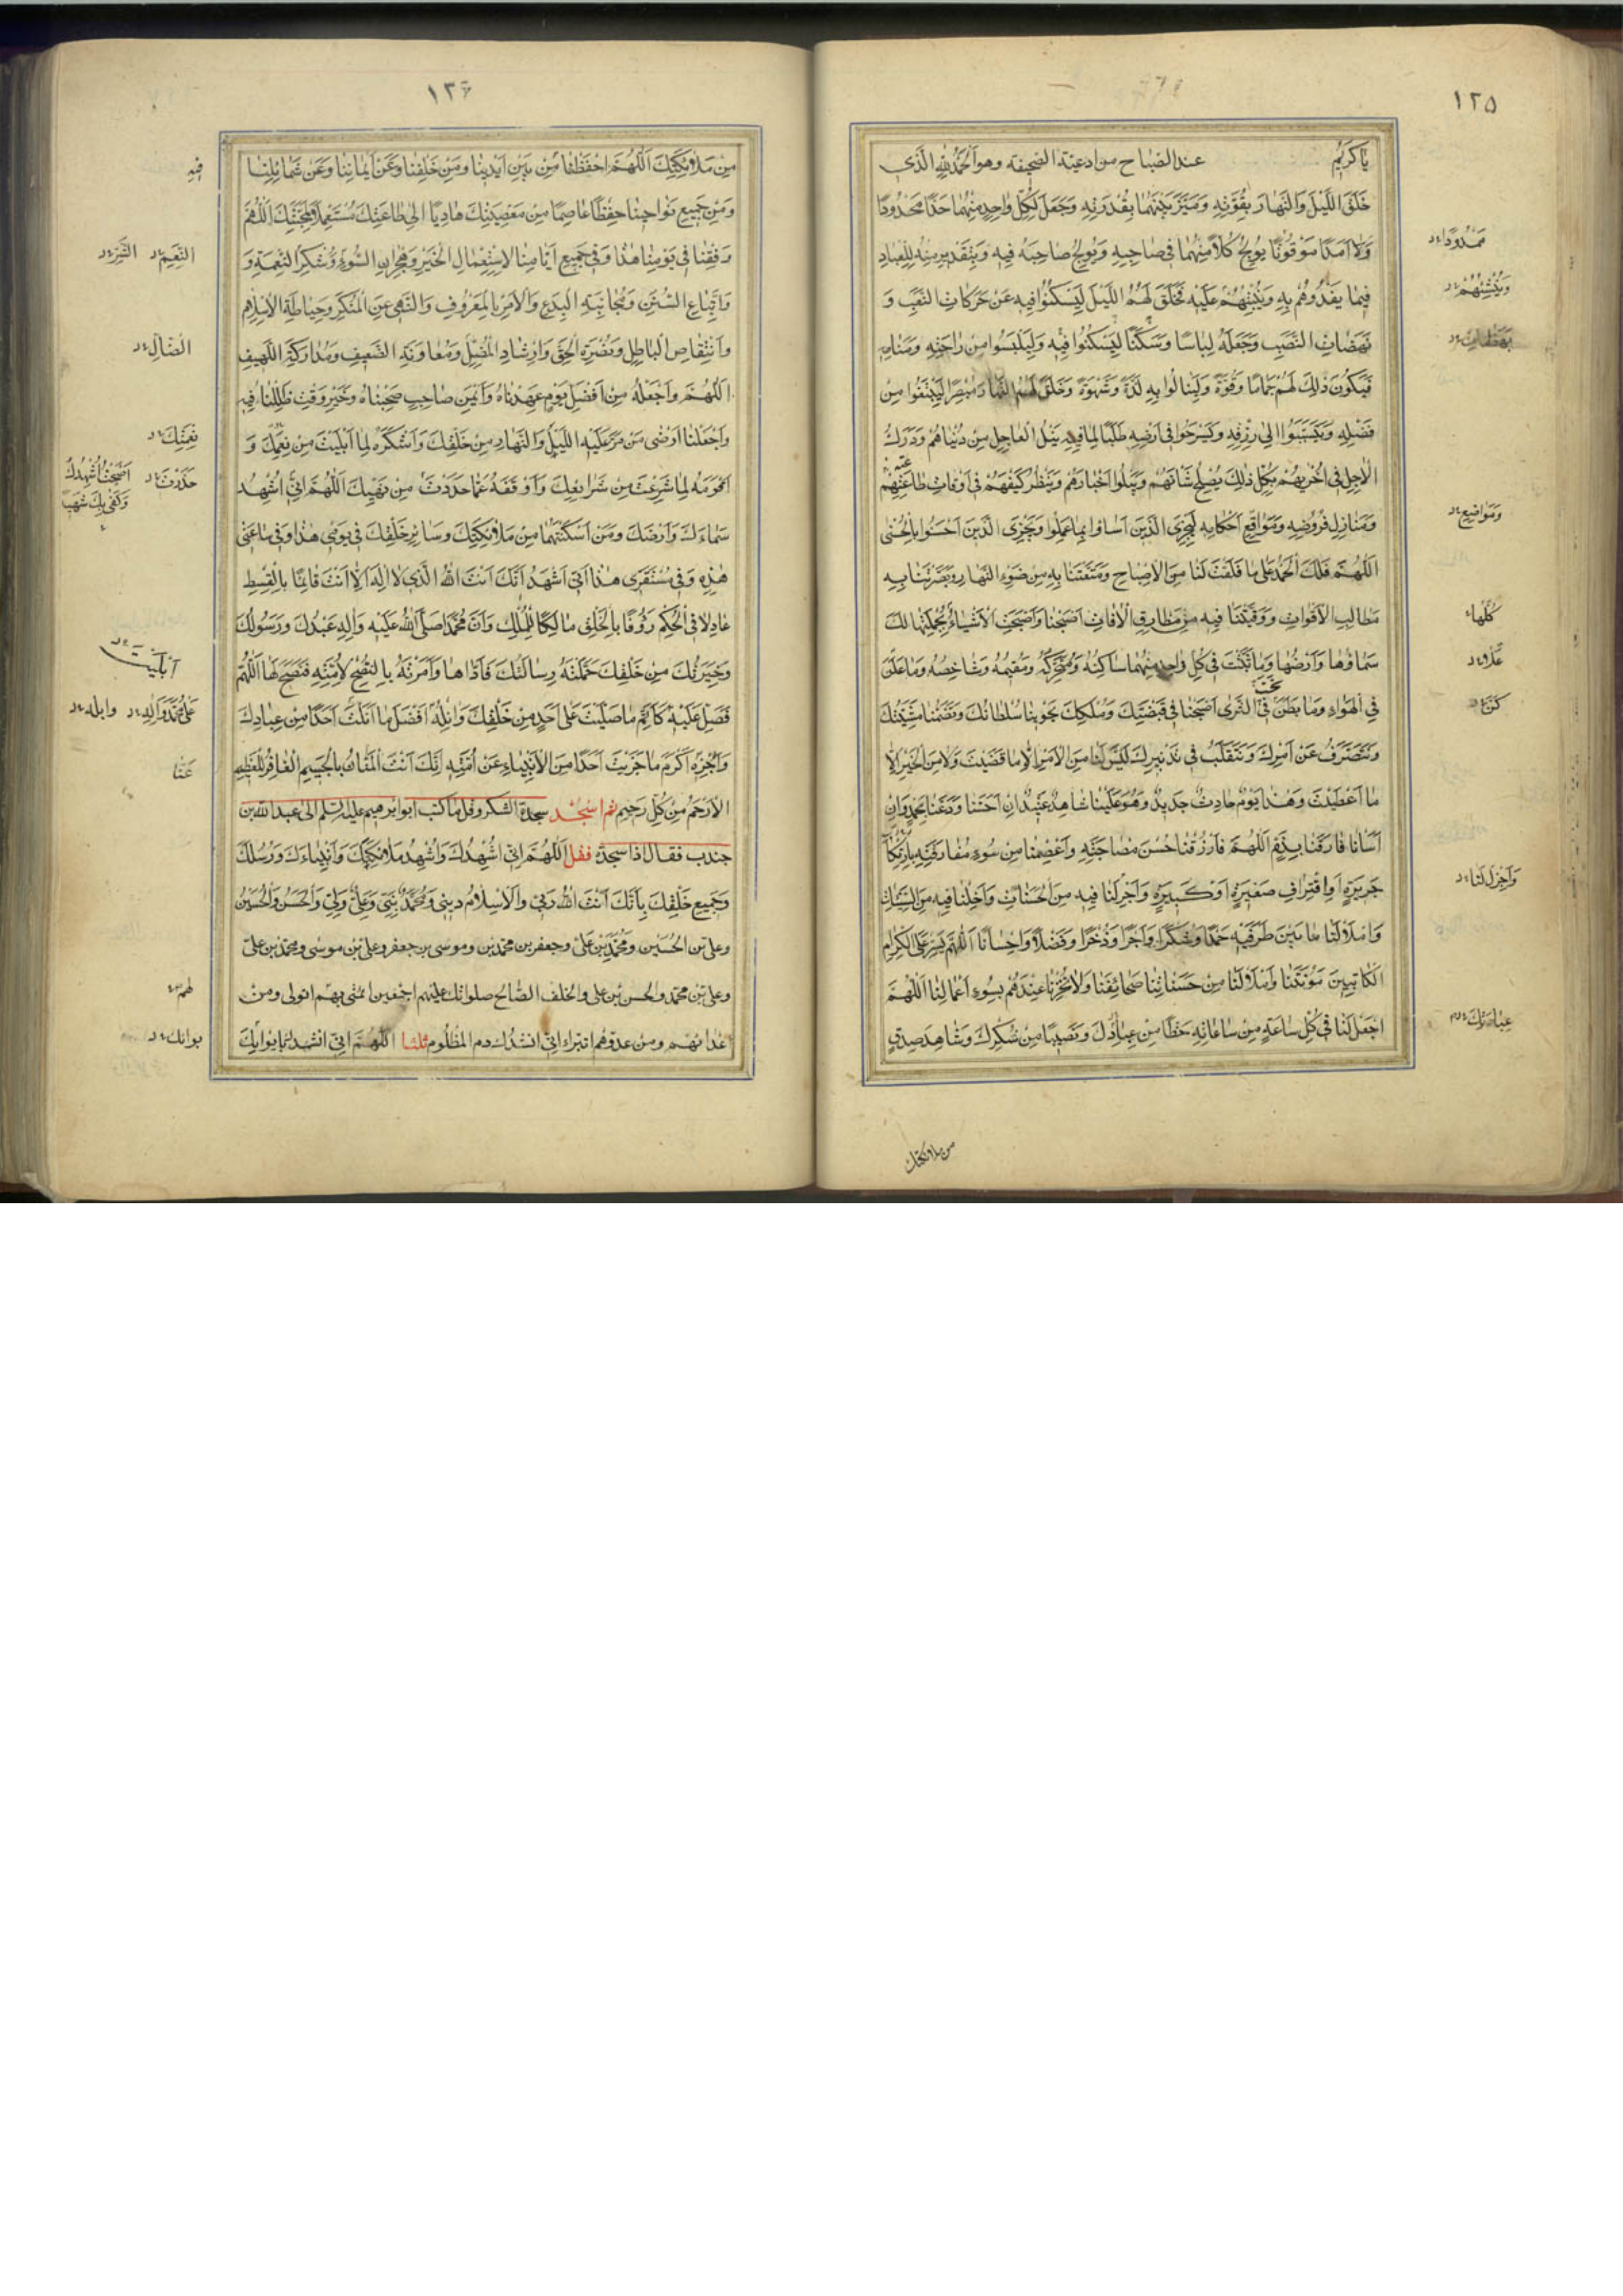 ١٢٥
يا كَريمُ عند الصّباح من ادعية الصّحيفة وهو اَلحَمدُ لِلّهِ الَّذي
خَلَقَ اللَّيْلَ وَالنَّهارَ بِقُوَّتِهِ وَمَيَّزَ بَيْنَهُما بِقُدْرَتِهِ وَجَعَلَ لِكُلِّ واحِدٍ مِنْهُما حَدًّا مَحْدُودًا
وَلا اَمَدًا مَوْقُوتًا يُولِجُ كُلًّا مِنْهُما في صاحِبِهِ وَيُولِجُ صاحِبَهُ فيهِ وَبِتَقْديرٍ مِنْهُ لِلْعِبادِ
مَمْدُودًا
فيما يَغْذُوهُمْ بِهِ وَيُنْبِتُهُمْ عَلَيْهِ فَخَلَقَ لَهُمُ اللَّيْلَ لِيَسْكُنُوا فيهِ عَنْ حَرَكاتِ التَّعَبِ وَ
وَيُنْشِئُهُمْ
نَهَضاتِ النَّصَبِ وَجَعَلَهُ لِباسًا وَسَكَنًا لِيَسْكُنُوا فيهِ وَلِيَلْبَسُوا مِنْ راحَتِهِ وَمَنامِهِ
فَيَكُونَ ذلِكَ لَهُمْ جَمامًا وَقُوَّةً وَلِيَنالُوا بِهِ لَذَّةً وَشَهْوَةً وَخَلَقَ لَهُمُ النَّهارَ مُبْصِرًا لِيَبْتَغُوا مِنْ
فَضْلِهِ وَيَتَسَبَّبُوا اِلى رِزْقِهِ وَيَسْرَحُوا في اَرْضِهِ طَلَبًا لِما فيهِ نَيْلُ الْعاجِلِ مِنْ دُنْياهُمْ وَدَرَكُ
الْاجِلِ في اُخْريهُمْ بِكُلِّ ذلِكَ يُصْلِحُ شَاْنَهُمْ وَيَبْلُوا اَخْبارَهُمْ وَيَنْظُرُ كَيْفَ هُمْ في اَوْقاتِ طاعَتِهِمْ
وَمَنازِلِ فُرُوضِهِ وَمَواقِعِ اَحْكامِهِ لِيَجْزِيَ الَّذينَ اَساؤا بِما عَمِلُوا وَيَجْزِيَ الَّذينَ اَحْسَنُوا بِالْحُسْنى
وَمَواضِعِ
اَللّهُمَّ فَلَكَ الْحَمْدُ عَلى ما فَلَقْتَ لَنا مِنَ الْاِصْباحِ وَمَتَّعْتَنا بِهِ مِنْ ضَوْءِ النَّهارِ وَبَصَّرْتَنا بِهِ
مَطالِبِ الْاَقْواتِ وَوَقَيْتَنا فيهِ مِنْ طَوارِقِ الْافاتِ اَصْبَحْنا وَاَصْبَحَتِ الْاَشْياءُ بِجُمْلَتِها لَكَ
كُلُّها
سَماؤُها وَاَرْضُها وَما بَثَثْتَ في كُلِّ واحِدٍ مِنْهُما ساكِنُهُ وَمُتَحَرِّكُهُ وَمُقيمُهُ وَشاخِصُهُ وَما عَلَنَ
فِي الْهَواءِ وَما بَطَنَ فِي الثَّرى اَصْبَحْنا في قَبْضَتِكَ وَمُلْكِكَ يَحْوينا سُلْطانُكَ وَتَضُمُّنا مَشِيَّتُكَ
تَحْتَ
وَنَتَصَرَّفُ عَنْ اَمْرِكَ وَنَتَقَلَّبُ في تَدْبيرِكَ لَيْسَ لَنا مِنَ الْاَمْرِ اِلّا ما قَضَيْتَ وَلا مِنَ الْخَيْرِ اِلّا
ما اَعْطَيْتَ وَهذا يَوْمٌ حادِثٌ جَديدٌ وَهُوَ عَلَيْنا شاهِدٌ عَتيدٌ اِنْ اَحْسَنّا وَدَّعَنا بِحَمْدٍ وَاِنْ
اَسَاْنا فارَقَنا بِذَمٍّ اَللّهُمَّ فَارْزُقْنا حُسْنَ مُصاحَبَتِهِ وَاعْصِمْنا مِنْ سُوءِ مُفارَقَتِهِ بِارْتِكابِ
جَريرَةٍ اَوِ اقْتِرافِ صَغيرَةٍ اَوْ كَبيرَةٍ وَاَجْزِلْ لَنا فيهِ مِنَ الْحَسَناتِ وَاَخْلِنا فيهِ مِنَ السَّيِّئاتِ
وَاَجْزِلْ لَنا
وَامْلَاْ لَنا ما بَيْنَ طَرَفَيْهِ حَمْدًا وَشُكْرًا وَاَجْرًا وَذُخْرًا وَفَضْلًا وَاِحْسانًا اَللّهُمَّ يَسِّرْ عَلَى الْكِرامِ
الْكاتِبينَ مَؤُنَتَنا وَامْلَاْ لَنا مِنْ حَسَناتِنا صَحائِفَنا وَلا تُخْزِنا عِنْدَهُمْ بِسُوءِ اَعْمالِنا اَللّهُمَّ
اجْعَلْ لَنا في كُلِّ ساعَةٍ مِنْ ساعاتِهِ حَظًّا مِنْ عِبادِكَ وَنَصيبًا مِنْ شُكْرِكَ وَشاهِدَ صِدْقٍ
من ملائكتك
١٢٦
مِنْ مَلائِكَتِكَ اَللّهُمَّ احْفَظْنا مِنْ بَيْنِ اَيْدينا وَمِنْ خَلْفِنا وَعَنْ اَيْمانِنا وَعَنْ شَمائِلِنا
فيهِ
وَمِنْ جَميعِ نَواحينا حِفْظًا عاصِمًا مِنْ مَعْصِيَتِكَ هادِيًا اِلى طاعَتِكَ مُسْتَعْمِلًا لِمَحَبَّتِكَ اَللّهُمَّ
وَفِّقْنا في يَوْمِنا هذا وَفي جَميعِ اَيّامِنا لِاسْتِعْمالِ الْخَيْرِ وَهِجْرانِ السُّوءِ وَشُكْرِ النِّعْمَةِ وَ
النِّعَمِ
وَاتِّباعِ السُّنَنِ وَمُجانَبَةِ الْبِدَعِ وَالْاَمْرِ بِالْمَعْرُوفِ وَالنَّهْيِ عَنِ الْمُنْكَرِ وَحِياطَةِ الْاِسْلامِ
وَانْتِقاصِ الْباطِلِ وَنُصْرَةِ الْحَقِّ وَاِرْشادِ الْمُضِلِّ وَمُعاوَنَةِ الضَّعيفِ وَمُدارَكَةِ اللَّهيفِ
الضّالِّ
اَللّهُمَّ وَاجْعَلْهُ مِنْ اَفْضَلِ يَوْمٍ عَهِدْناهُ وَاَيْمَنِ صاحِبٍ صَحِبْناهُ وَخَيْرِ وَقْتٍ ظَلِلْنا فيهِ
وَاجْعَلْنا اَرْضى مَنْ مَرَّ عَلَيْهِ اللَّيْلُ وَالنَّهارُ مِنْ خَلْقِكَ وَاَشْكَرَهُ لِما اَبْلَيْتَ مِنْ نِعَمِكَ وَ
نِعْمَتِكَ
اَقْوَمَهُ لِما شَرَعْتَ مِنْ شَرايِعِكَ وَاَوْقَفَهُ عَمّا حَدَدْتَ مِنْ نَهْيِكَ اَللّهُمَّ اِنّي اُشْهِدُ
حَذَّرْتَ
اَصْبَحْتُ اُشْهِدُكَ
وَكَفى بِكَ شَهيدًا
سَماءَكَ وَاَرْضَكَ وَمَنْ اَسْكَنْتَهُما مِنْ مَلائِكَتِكَ وَسائِرِ خَلْقِكَ في يَوْمي هذا وَفي ساعَتي
هذِهِ وَفي مُسْتَقَرّي هذا اَنّي اَشْهَدُ اَنَّكَ اَنْتَ اللّهُ الَّذي لا اِلهَ اِلّا اَنْتَ قائِمًا بِالْقِسْطِ
عادِلًا فِي الْحُكْمِ رَؤُفًا بِالْخَلْقِ مالِكًا لِلْمُلْكِ وَاَنَّ مُحَمَّدًا صَلَّى اللّهُ عَلَيْهِ وَالِهِ عَبْدُكَ وَرَسُولُكَ
وَخِيَرَتُكَ مِنْ خَلْقِكَ حَمَّلْتَهُ رِسالَتَكَ فَاَدّاها وَاَمَرْتَهُ بِالنُّصْحِ لِاُمَّتِهِ فَنَصَحَ لَها اَللّهُمَّ
فَصَلِّ عَلَيْهِ كَاَتَمِّ ما صَلَّيْتَ عَلى اَحَدٍ مِنْ خَلْقِكَ وَاَنِلْهُ اَفْضَلَ ما اَنَلْتَ اَحَدًا مِنْ عِبادِكَ
عَلى مُحَمَّدٍ وَالِهِ
وَاجْزِهِ اَكْرَمَ ما جَزَيْتَ اَحَدًا مِنَ الْاَنْبِياءِ عَنْ اُمَّتِهِ اِنَّكَ اَنْتَ الْمَنّانُ بِالْجَسيمِ الْغافِرُ لِلْعَظيمِ
عَنّا
الْاَرْحَمُ مِنْ كُلِّ رَحيمٍ ثم اسجُد سجدة الشكر وقل ما كتب ابو ابرهيم عليه السّلم الى عبد الله بن
جندب فقال اذا سجدت فقل اَللّهُمَّ اِنّي اُشْهِدُكَ وَاُشْهِدُ مَلائِكَتَكَ وَاَنْبِياءَكَ وَرُسُلَكَ
وَجَميعَ خَلْقِكَ بِاَنَّكَ اَنْتَ اللّهُ رَبّي وَالْاِسْلامُ ديني وَمُحَمَّدٌ نَبِيّي وَعَلِيٌّ وَلِيّي وَالْحَسَنُ وَالْحُسَيْنُ
وعلي بن الحُسَين ومُحَمّد بن عَليّ وجعفر بن محمّد بن وموسى بن جعفر وعلي بن موسى ومحمّد بن عليّ
وعلي بن محمّد والحسن بن علي والخلف الصّالح صلواتك عليهم اجمعين ائمّتي بهم اتولى ومن
اعدائهم ومن عدوّهم اتبراء اللهم اني انشدك دم المظلوم ثلثا اَللّهُمَّ انّي انشدك بايوائك